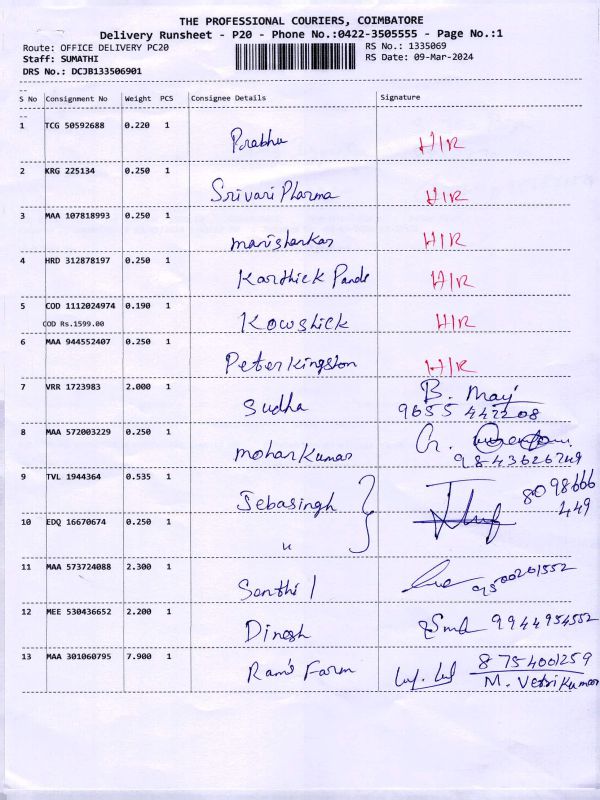 THE PROFESSIONAL COURIERS, COIMBATORE
Delivery Runsheet - P20 - Phone No.:0422-3505555 - Page No.:1
Route: OFFICE DELIVERY PC20 RS No.: 1335069
Staff: SUMATHI RS Date: 09-Mar-2024
DRS No.: DCJB133506901
S No Consignment No Weight PCS Consignee Details Signature
1 TCG 50592688 0.220 1 Prabhu H/R
2 KRG 225134 0.250 1 Srivari Pharma H/R
3 MAA 107818993 0.250 1 manishankar H/R
4 HRD 312878197 0.250 1 Karthick Pandi H/R
5 COD 1112024974 0.190 1 Kowshick H/R
COD Rs.1599.00
6 MAA 944552407 0.250 1 Peter Kingston H/R
7 VRR 1723983 2.000 1 Sudha B. Mary
9655 442208
8 MAA 572003229 0.250 1 mohan Kumar G.
9843626749
9 TVL 1944364 0.535 1 Jebasingh 8098666
449
10 EDQ 16670674 0.250 1 "
11 MAA 573724088 2.300 1 Senthil 9500201552
12 MEE 530436652 2.200 1 Dinesh 9944954552
13 MAA 301060795 7.900 1 Ram's Farm 8754001259
M. Vetri Kumar